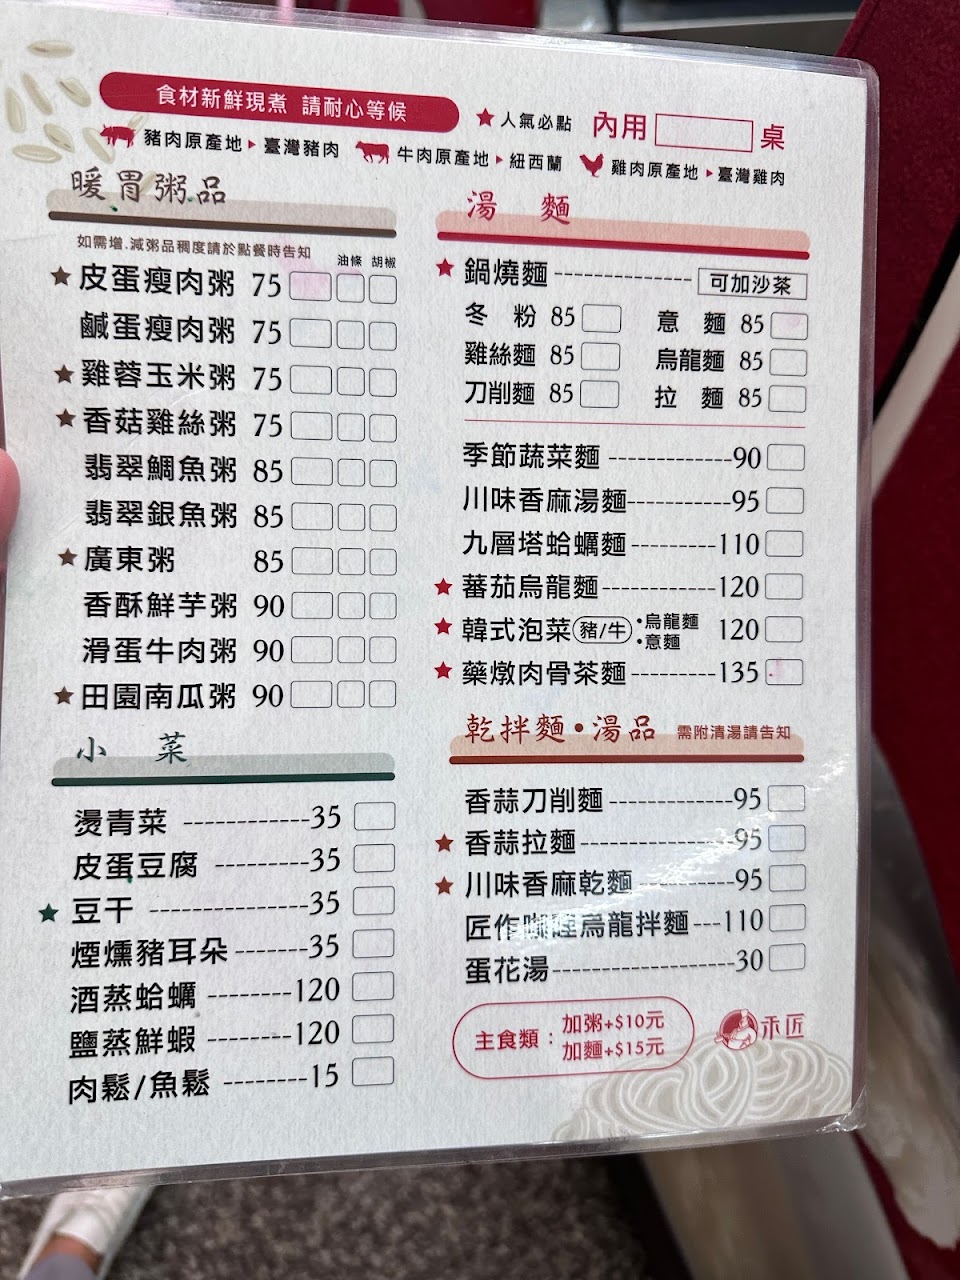 食材新鮮現煮 請耐心等候
★人氣必點 內用 桌
豬肉原產地▸臺灣豬肉 牛肉原產地▸紐西蘭 雞肉原產地▸臺灣雞肉
暖胃粥品
如需增.減粥品稠度請於點餐時告知
油條 胡椒
★皮蛋瘦肉粥 75
鹹蛋瘦肉粥 75
★雞蓉玉米粥 75
★香菇雞絲粥 75
翡翠鯛魚粥 85
翡翠銀魚粥 85
★廣東粥 85
香酥鮮芋粥 90
滑蛋牛肉粥 90
★田園南瓜粥 90
小菜
燙青菜 ------------35
皮蛋豆腐 ---------35
★豆干 ---------------35
煙燻豬耳朵-------35
酒蒸蛤蠣 --------120
鹽蒸鮮蝦 --------120
肉鬆/魚鬆 --------15
湯麵
★鍋燒麵-------------- 可加沙茶
冬粉 85 意麵 85
雞絲麵 85 烏龍麵 85
刀削麵 85 拉麵 85
季節蔬菜麵 ------------90
川味香麻湯麵----------95
九層塔蛤蠣麵 --------110
★蕃茄烏龍麵-----------120
★韓式泡菜(豬/牛)•烏龍麵 •意麵 120
★藥燉肉骨茶麵--------135
乾拌麵•湯品 需附清湯請告知
香蒜刀削麵------------95
★香蒜拉麵---------------95
★川味香麻乾麵---------95
匠作咖哩烏龍拌麵---110
蛋花湯------------------30
主食類：加粥+$10元
加麵+$15元
禾匠